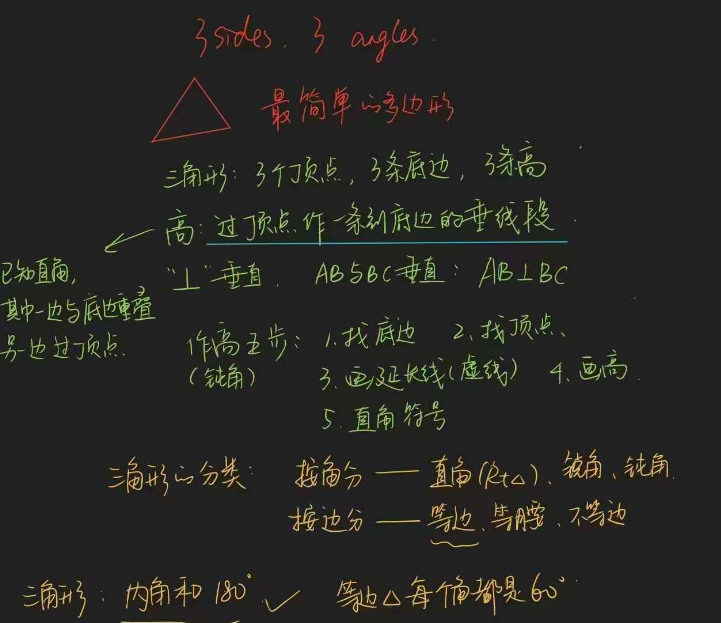 3 sides. 3 angles.
最简单的多边形
三角形: 3个顶点, 3条底边, 3条高
高: 过顶点作一条到底边的垂线段.
已知直角,
其中一边与底边重叠
另一边过顶点.
"⊥" 垂直. AB与BC垂直: AB⊥BC
作高五步: 1.找底边 2.找顶点、
(钝角) 3.画延长线(虚线) 4.画高.
5.直角符号
三角形的分类: 按角分 — 直角(Rt△)、锐角、钝角.
按边分 — 等边、等腰、不等边
三角形: 内角和180° ✓ 等边△每个角都是60°.